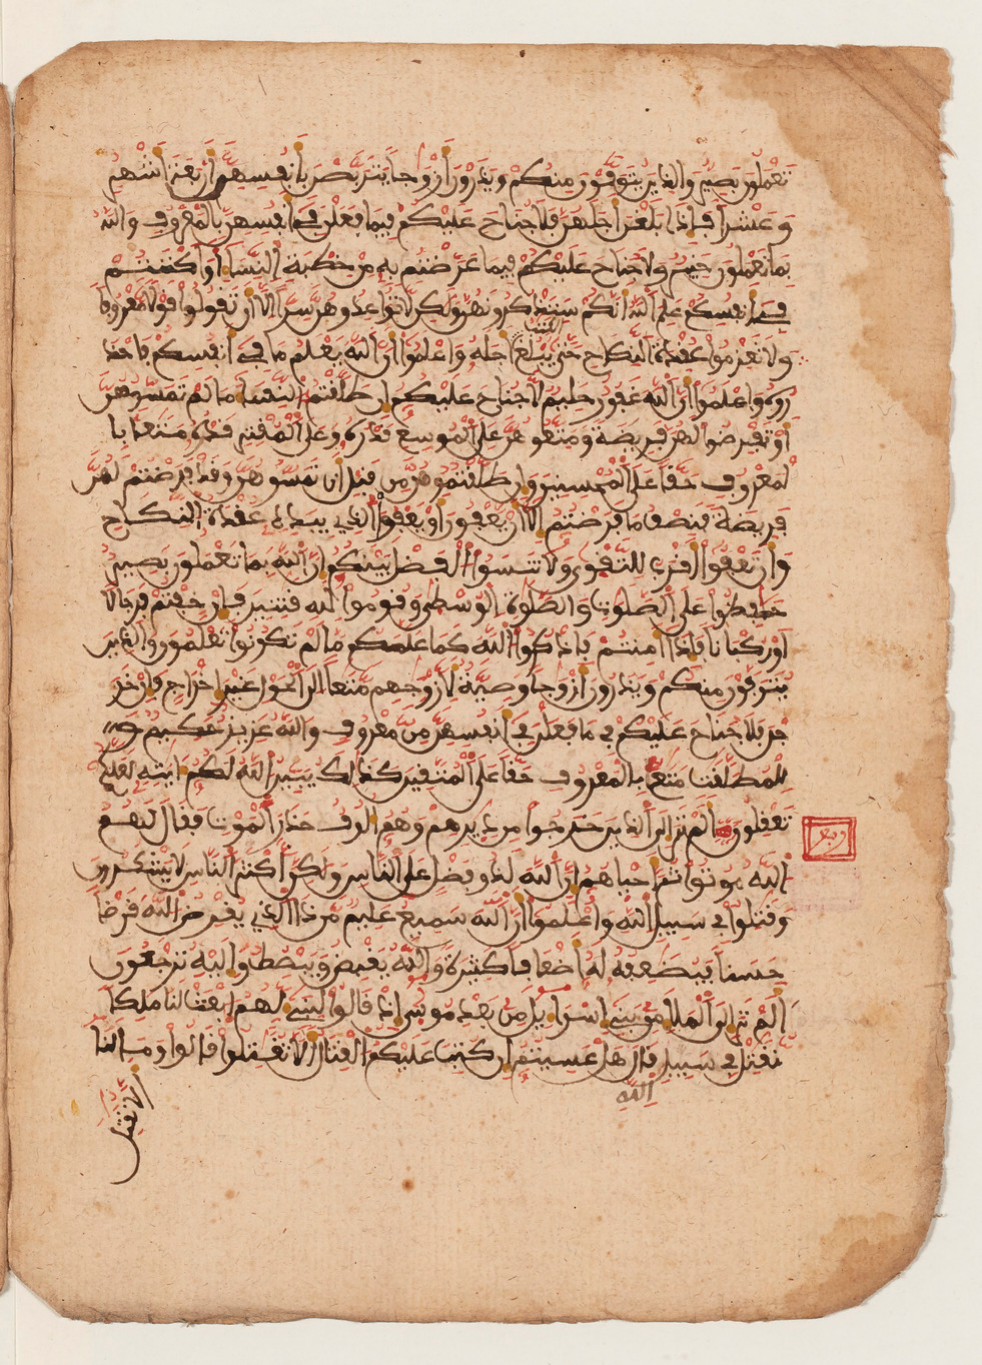 تعملون بصير والذين يتوفون منكم ويذرون أزوجا يتربصن بأنفسهن أربعة أشهر
وعشرا فإذا بلغن أجلهن فلا جناح عليكم فيما فعلن في أنفسهن بالمعروف والله
بما تعملون خبير ولا جناح عليكم فيما عرضتم به من خطبة النساء أو أكننتم
في أنفسكم علم الله أنكم ستذكرونهن ولكن لا تواعدوهن سرا إلا أن تقولوا قولا معروفا
ولا تعزموا عقدة النكاح حتى يبلغ الكتب أجله واعلموا أن الله يعلم ما في أنفسكم فاحذ
روه واعلموا أن الله غفور حليم لا جناح عليكم إن طلقتم النساء ما لم تمسوهن
أو تفرضوا لهن فريضة ومتعوهن على الموسع قدره وعلى المقتر قدره متعا با
لمعروف حقا على المحسنين وإن طلقتموهن من قبل أن تمسوهن وقد فرضتم لهن
فريضة فنصف ما فرضتم إلا أن يعفون أو يعفوا الذي بيده عقدة النكاح
وأن تعفوا أقرب للتقوى ولا تنسوا الفضل بينكم إن الله بما تعملون بصير
حفظوا على الصلوت والصلوة الوسطى وقوموا لله قنتين فإن خفتم فرجالا
أو ركبانا فإذا أمنتم فاذكروا الله كما علمكم ما لم تكونوا تعلمون والذين
يتوفون منكم ويذرون أزوجا وصية لأزوجهم متعا إلى الحول غير إخراج فإن خر
جن فلا جناح عليكم في ما فعلن في أنفسهن من معروف والله عزيز حكيم و
للمطلقت متع بالمعروف حقا على المتقين كذلك يبين الله لكم ءايته لعلكم
تعقلون ألم تر إلى الذين خرجوا من ديرهم وهم ألوف حذر الموت فقال لهم
الله موتوا ثم أحياهم إن الله لذو فضل على الناس ولكن أكثر الناس لا يشكرون
وقتلوا في سبيل الله واعلموا أن الله سميع عليم من ذا الذي يقرض الله قرضا
حسنا فيضعفه له أضعافا كثيرة والله يقبض ويبصط وإليه ترجعون
ألم تر إلى الملإ من بني إسراءيل من بعد موسى إذ قالوا لنبيء لهم ابعث لنا ملكا
نقتل في سبيل الله قال هل عسيتم إن كتب عليكم القتال ألا تقتلوا قالوا وما لنا
ألا نقتل
ربع